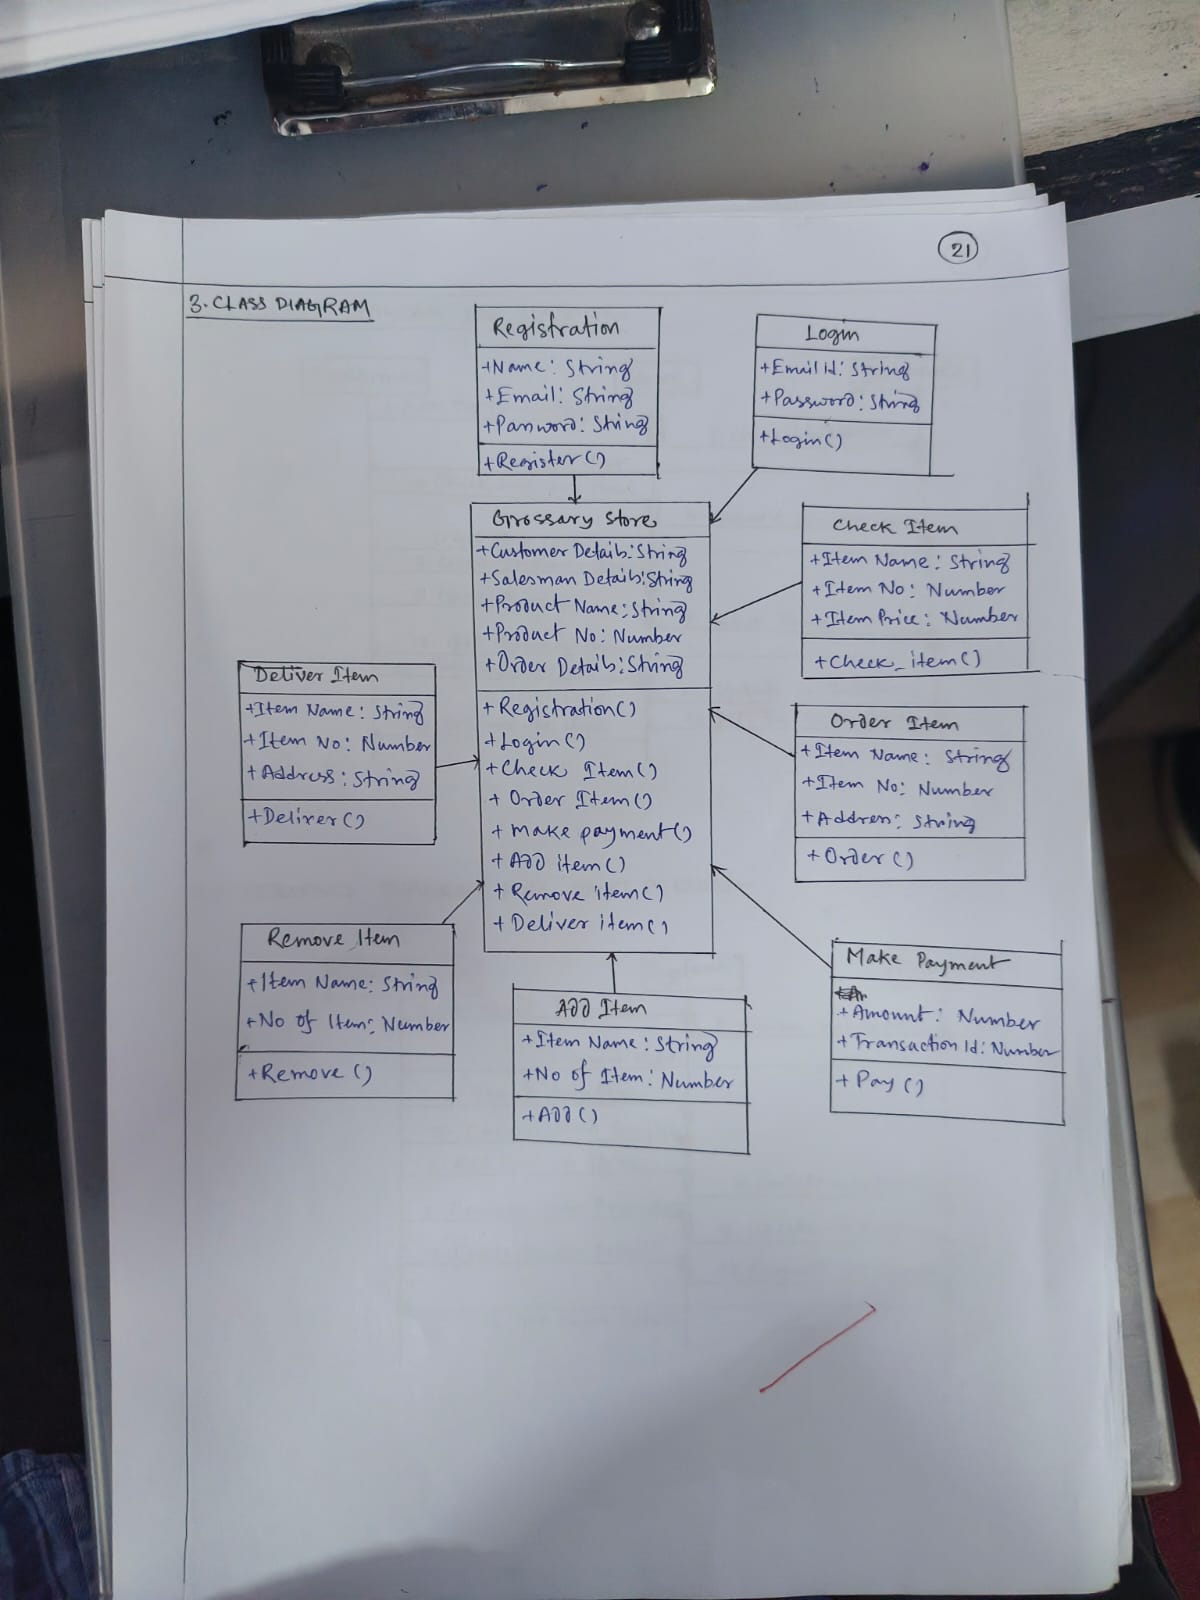 21
3. CLASS DIAGRAM
Registration
+Name: String
+Email: String
+Password: String
+Register()
Login
+Email id: String
+Password: String
+Login()
Grossary Store
+Customer Details: String
+Salesman Details: String
+Product Name: String
+Product No: Number
+Order Details: String
+Registration()
+Login()
+Check Item()
+Order Item()
+Make payment()
+Add item()
+Remove item()
+Deliver item()
Check Item
+Item Name: String
+Item No: Number
+Item Price: Number
+Check_item()
Deliver Item
+Item Name: String
+Item No: Number
+Address: String
+Deliver()
Order Item
+Item Name: String
+Item No: Number
+Address: String
+Order()
Remove Item
+Item Name: String
+No of Item: Number
+Remove()
Add Item
+Item Name: String
+No of Item: Number
+Add()
Make Payment
+Amount: Number
+Transaction Id: Number
+Pay()